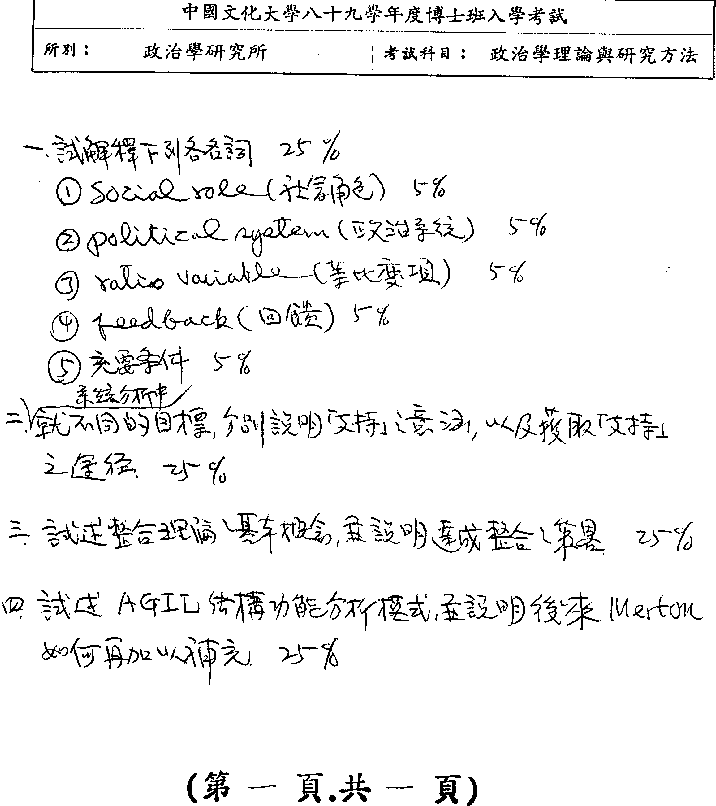 中國文化大學八十九學年度博士班入學考試
所別： 政治學研究所 考試科目： 政治學理論與研究方法
一.試解釋下列各名詞 25%
① Social role (社會角色) 5%
② political system (政治系統) 5%
③ ratio variable (等比變項) 5%
④ feedback (回饋) 5%
⑤ 充要条件 5%
系統分析中
二.就不同的目標,分別說明「支持」之意涵,以及獲取「支持」
之途徑. 25%
三.試述整合理論之基本概念,並說明達成整合之策畧 25%
四.試述 AGIL 結構功能分析模式,並說明後來 Merton
如何再加以補充. 25%
(第 一 頁.共 一 頁)